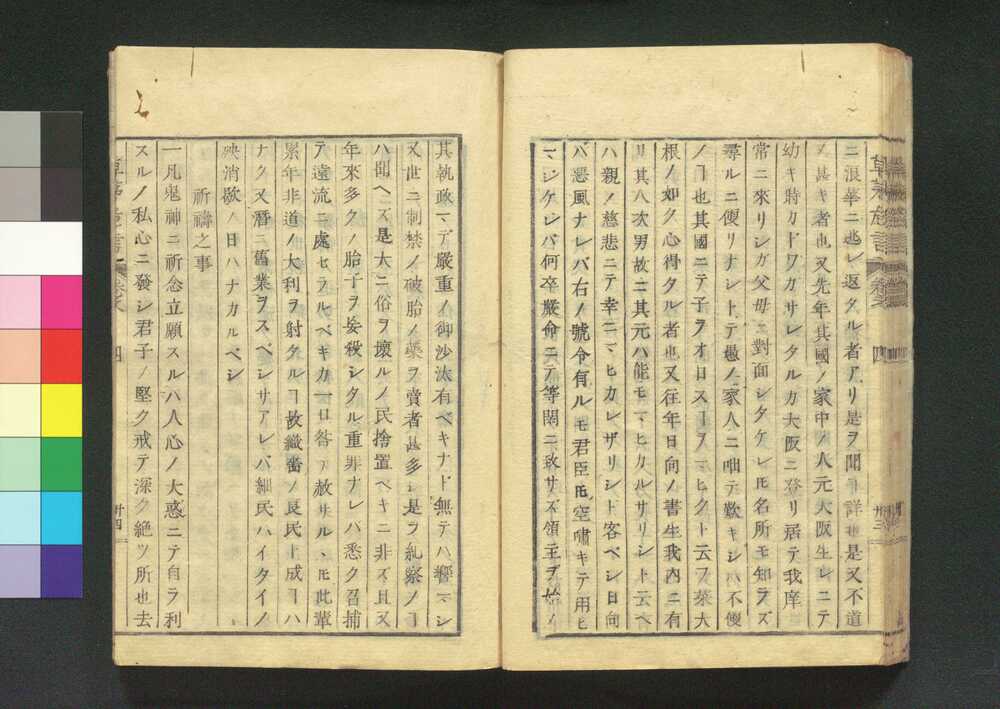 ニ浪華ニ逃レ返タル者アリ是ヲ聞ヿ詳也是又不道
ノ甚キ者也又先年其國ノ家中ノ人元大阪生レニテ
幼キ時カドワカサレタルカ大阪ニ登リ居テ我庠
常ニ來リシガ父母ニ對面シタケレ𪜈名所モ知ラズ
尋ルニ便リナシトテ愚ノ家人ニ咄テ歎キシハ不便
ノヿ也其國ニテ子ヲオロスヿヲマヒクト云フ菜大
根ノ如ク心得タル者也又往年日向ノ書生我内ニ有
其八次男故ニ其元ハ能モマヒカレサリシト云ヘ
ハ親ノ慈悲ニテ幸ニマヒカレザリシト客ベシ日向
バ悪風ナレバ右ノ號令有ルモ君臣𪜈空嘯キテ用ヒ
マジケレバ何卒嚴命ニテ等閑ニ致サズ領主ヲ始メ
其執政マデ嚴重ノ御沙汰有ベキナド無テハ響マシ
又世ニ制禁ノ破胎ノ藥ヲ賣者甚多シ是ヲ糺察ノヿ
ハ聞ヘズ是大ニ俗ヲ壞ルノ民捨置ベキニ非ズ且又
年來多クノ胎子ヲ妄殺シタル重罪ナレバ悉ク召捕
テ遠流ニ處セラルベキカ一旦咎ヲ赦サル丶𪜈此輩
累年非道ノ大利ヲ射タルヿ故織嗇ノ良民ト成ヿハ
ナク又暦ニ舊業ヲスベシサアレバ細民ハイタイノ
殃消歇ノ日ハナカルベシ
祈禱之事
一凡鬼神ニ祈念立願スルハ人心ノ大惑ニテ自ラ利
スルノ私心ニ發シ君子ノ堅ク戒テ深ク絶ツ所也去
四
廿四